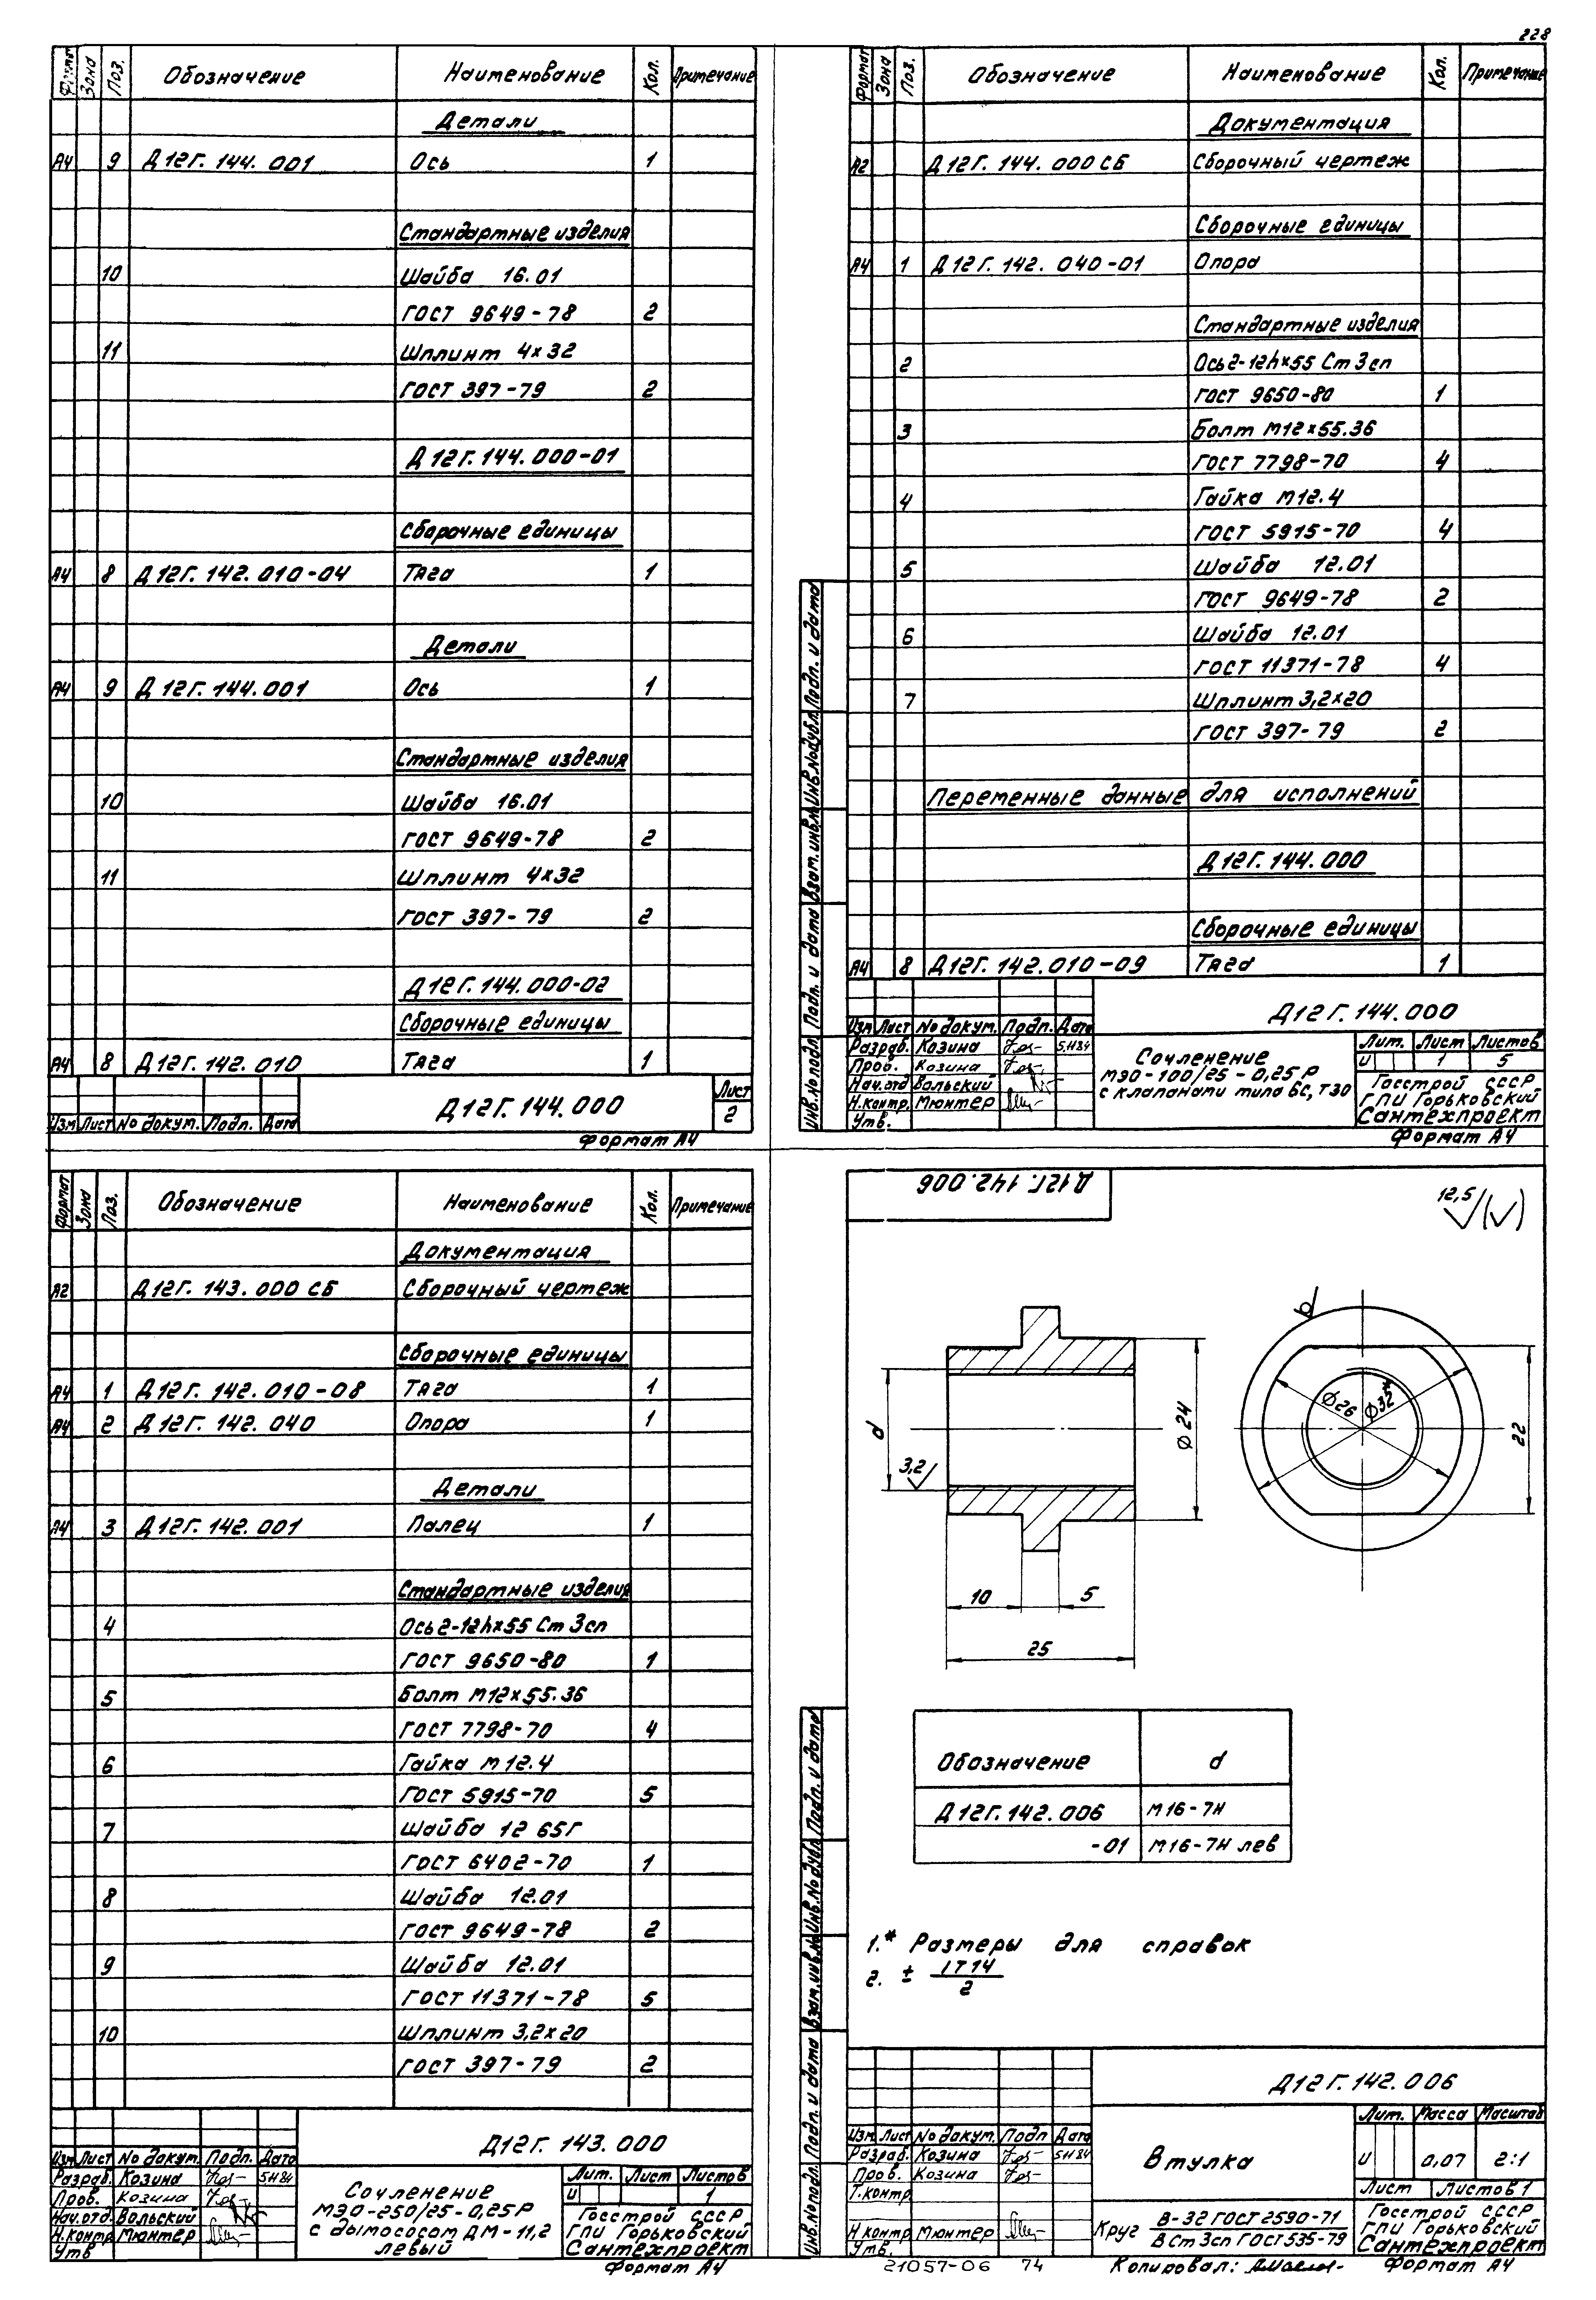 228
Формат Зона Поз. Обозначение Наименование Кол. Примечание
Детали
А4 9 Д12Г.144.001 Ось 1
Стандартные изделия
10 Шайба 16.01
ГОСТ 9649-78 2
11 Шплинт 4х32
ГОСТ 397-79 2
Д12Г.144.000-01
Сборочные единицы
А4 8 Д12Г.142.010-04 Тяга 1
Детали
А4 9 Д12Г.144.001 Ось 1
Стандартные изделия
10 Шайба 16.01
ГОСТ 9649-78 2
11 Шплинт 4х32
ГОСТ 397-79 2
Д12Г.144.000-02
Сборочные единицы
А4 8 Д12Г.142.010 Тяга 1
Изм Лист № докум. Подп. Дата
Д12Г.144.000
Лист
2
Формат А4
Формат Зона Поз. Обозначение Наименование Кол. Примечание
Документация
А2 Д12Г.144.000 СБ Сборочный чертеж
Сборочные единицы
А4 1 Д12Г.142.040-01 Опора
Стандартные изделия
2 Ось 2-12h×55 Ст 3сп
ГОСТ 9650-80 1
3 Болт М12×55.36
ГОСТ 7798-70 4
4 Гайка М12.4
ГОСТ 5915-70 4
5 Шайба 12.01
ГОСТ 9649-78 2
6 Шайба 12.01
ГОСТ 11371-78 4
7 Шплинт 3,2×20
ГОСТ 397-79 2
Переменные данные для исполнений
Д12Г.144.000
Сборочные единицы
А4 8 Д12Г.142.010-09 Тяга 1
Инв.№подл. Подп. и дата Взам.инв.№ Инв.№дубл. Подп. и дата
Д12Г.144.000
Изм Лист № докум. Подп. Дата
Разраб. Козина 5.XI84
Пров. Козина
Нач.отд Вольский
Н.контр. Мюнтер
Утв.
Сочленение
МЭО-100/25-0,25Р
с клапанами типа 6с, Т30
Лит. Лист Листов
И 1 5
Госстрой СССР
ГПИ Горьковский
Сантехпроект
Формат А4
Формат Зона Поз. Обозначение Наименование Кол. Примечание
Документация
А2 Д12Г.143.000 СБ Сборочный чертеж
Сборочные единицы
А4 1 Д12Г.142.010-08 Тяга 1
А4 2 Д12Г.142.040 Опора 1
Детали
А4 3 Д12Г.142.001 Палец 1
Стандартные изделия
4 Ось 2-12h×55 Ст 3сп
ГОСТ 9650-80 1
5 Болт М12×55.36
ГОСТ 7798-70 4
6 Гайка М12.4
ГОСТ 5915-70 5
7 Шайба 12 65Г
ГОСТ 6402-70 1
8 Шайба 12.01
ГОСТ 9649-78 2
9 Шайба 12.01
ГОСТ 11371-78 5
10 Шплинт 3,2×20
ГОСТ 397-79 2
Д12Г.143.000
Изм Лист № докум. Подп. Дата
Разраб. Козина 5.XI84
Пров. Козина
Нач.отд Вольский
Н.контр Мюнтер
Утв
Сочленение
МЭО-250/25-0,25Р
с дымососом ДМ-11,2
левый
Лит. Лист Листов
И 1
Госстрой СССР
ГПИ Горьковский
Сантехпроект
Формат А4
Д12Г.142.006
12,5 (√)
d
3,2
⌀24
⌀26
⌀32*
22
10
5
25
Обозначение d
Д12Г.142.006 М16-7Н
-01 М16-7Н лев
1.* Размеры для справок
2. ± IT14/2
Инв.№подл. Подп. и дата Взам.инв.№ Инв.№дубл. Подп. и дата
Д12Г.142.006
Изм Лист № докум. Подп Дата
Разраб. Козина 5.XI84
Пров. Козина
Т.контр
Н.контр Мюнтер
Утв.
Втулка
Лит. Масса Масштаб
И 0,07 2:1
Лист Листов 1
Круг В-32 ГОСТ 2590-71
В Ст 3сп ГОСТ 535-79
Госстрой СССР
ГПИ Горьковский
Сантехпроект
21057-06 74
Копировал:
Формат А4